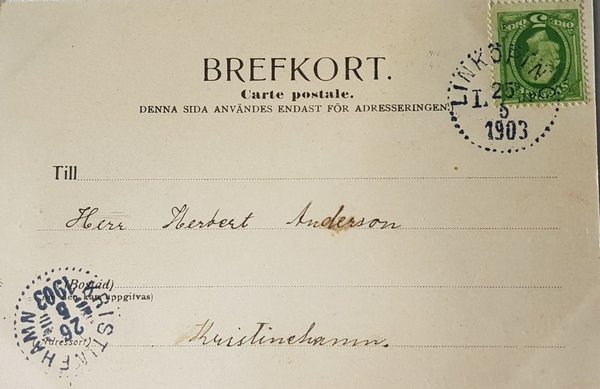 BREFKORT.
Carte postale.
DENNA SIDA ANVÄNDES ENDAST FÖR ADRESSERINGEN.
LINKÖPING
I.
25
5
1903
5
Till
Herr Herbert Anderson
(Bostad)
kan uppgifvas)
Kristinehamn.
KRISTINEHAMN
26
5
1903